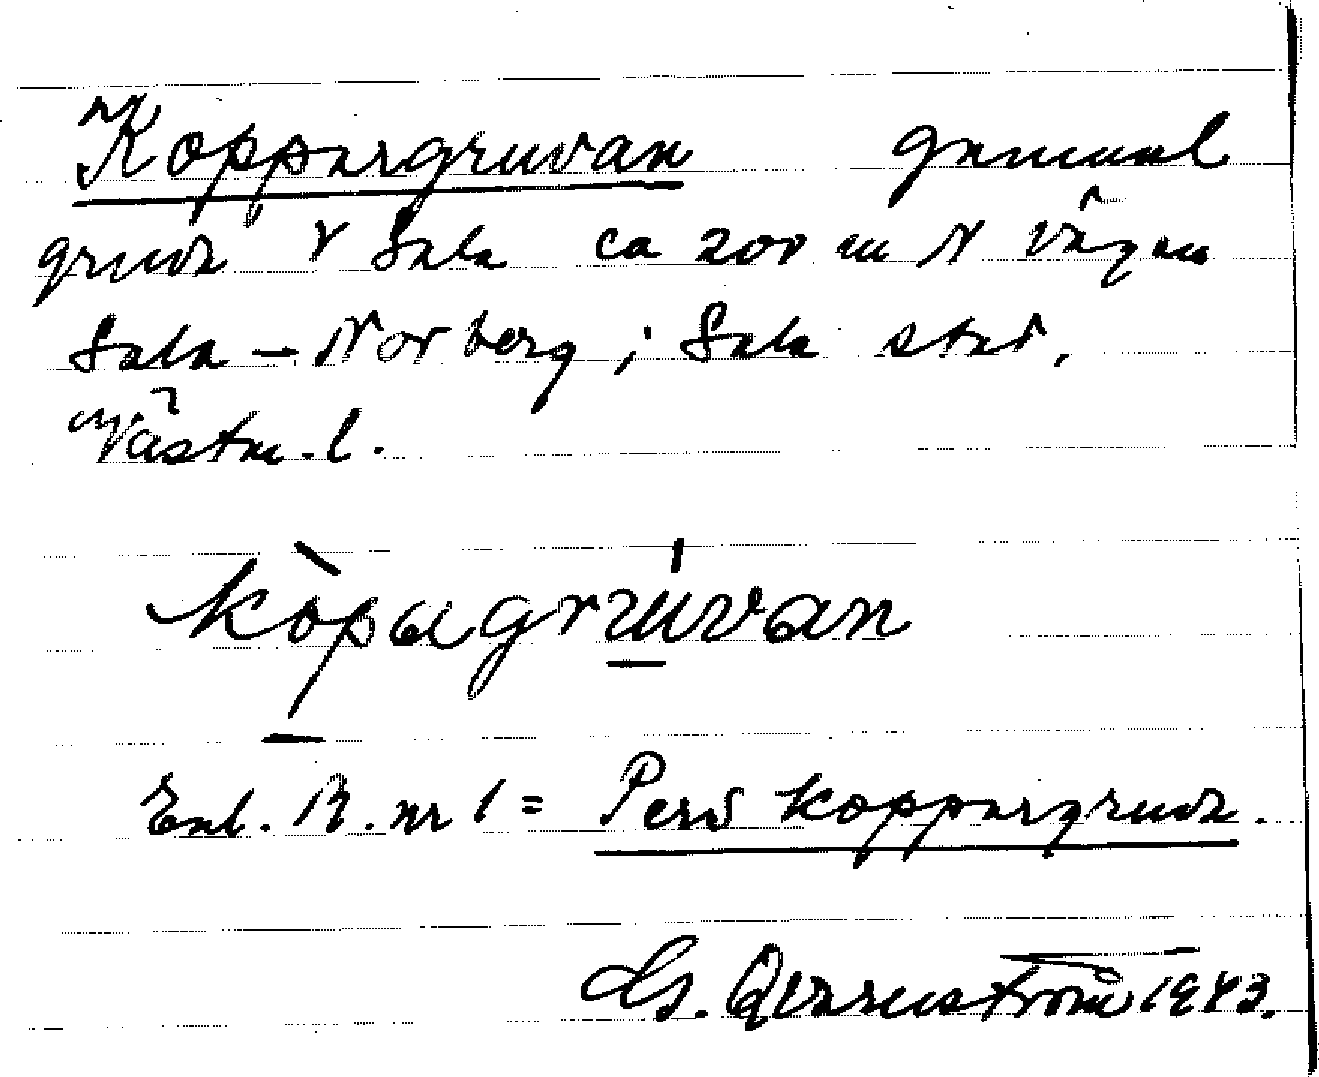 Koppargruvan gammal
gruva V Sala ca 200 m N vägen
Sala – Norberg; Sala stad,
Västm. l.
kòpagrúvan
Enl. R. nr 1 = Pers koppargruva.
G. Qvarnström 1943.